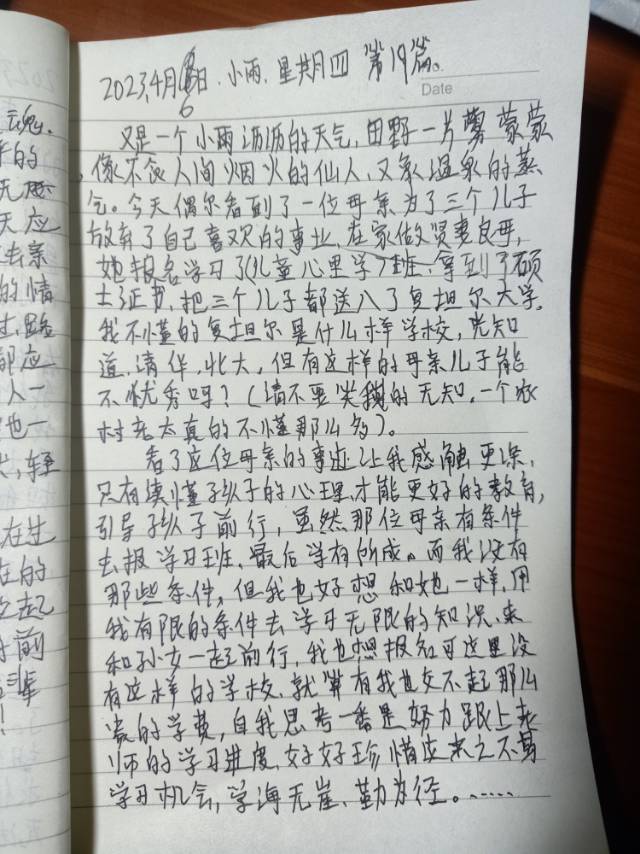 2023.4月6日.小雨.星期四 第19篇。
Date
又是一个小雨沥沥的天气,田野一片雾蒙蒙
,像不食人间烟火的仙人,又象温泉的蒸
气。今天偶尔看到了一位母亲为了三个儿子
放弃了自己喜欢的事业,在家做贤妻良母,
她报名学习了(儿童心里学)班,拿到了硕
士证书,把三个儿子都送入了复坦尔大学,
我不懂的复坦尔是什么样学校,光知
道,清华,北大,但有这样的母亲儿子能
不优秀吗?(请不要笑我的无知,一个农
村老太真的不懂那么多)。
看了这位母亲的事迹让我感触更深,
只有读懂孩子的心理,才能更好的教育,
引导孩子前行,虽然那位母亲有条件
去报学习班,最后学有所成。而我没有
那些条件,但我也好想和她一样,用
我有限的条件去学习无限的知识,来
和孙女一起前行,我也想报名可这里没
有这样的学校,就算有我也交不起那么
贵的学费,自我思考一番是努力跟上老
师的学习进度,好好珍惜这来之不易
学习机会,学海无崖,勤为径。……
魂.
的
无
天应
亲
的情
过,路
都应
人一
他一
,轻
在过
在的
起
前
辈
!